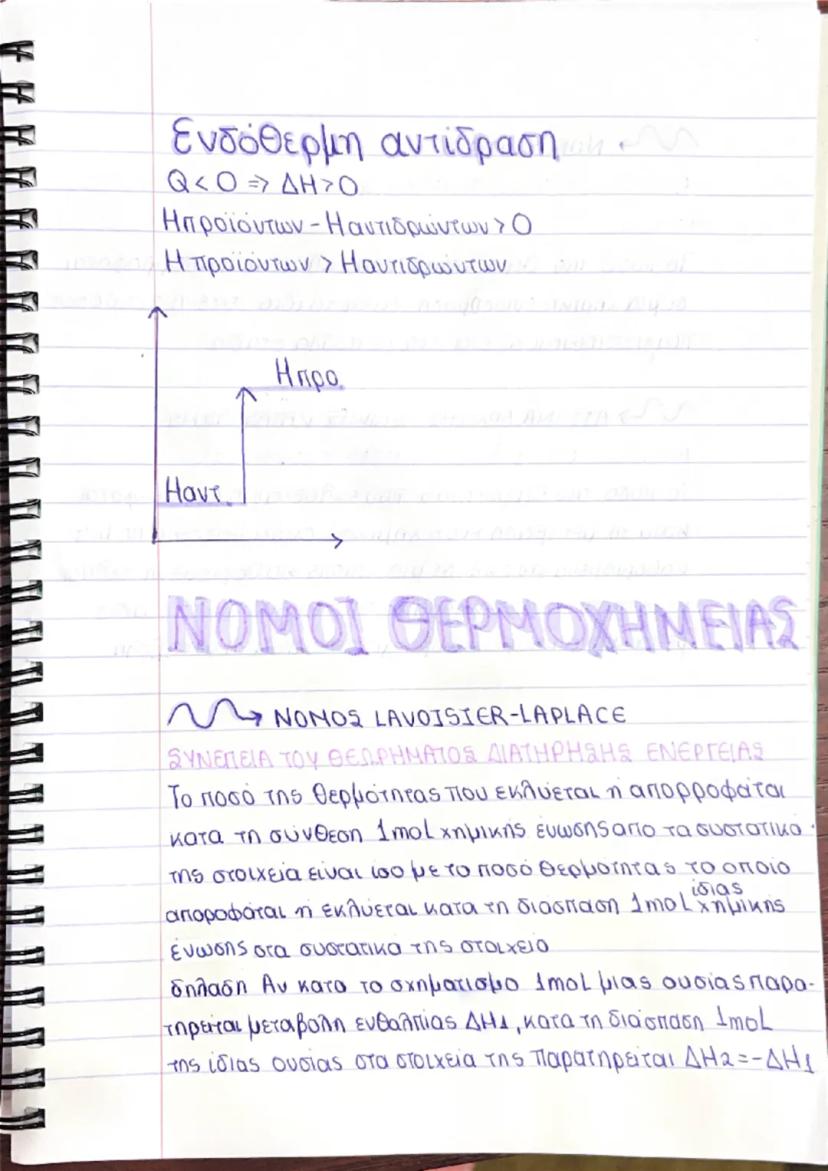 Ενδόθερμη αντίδραση
Q < 0 => ΔΗ > 0
Ηπροϊόντων - Ηαντιδρώντων > 0
Ηπροϊόντων > Ηαντιδρώντων
Ηπρο.
Ηαντ.
ΝΟΜΟΙ ΘΕΡΜΟΧΗΜΕΙΑΣ
ΝΟΜΟΣ LAVOISIER-LAPLACE
ΣΥΝΕΠΕΙΑ ΤΟΥ ΘΕΩΡΗΜΑΤΟΣ ΔΙΑΤΗΡΗΣΗΣ ΕΝΕΡΓΕΙΑΣ
Το ποσό της θερμότητας που εκλύεται ή απορροφάται
κατα τη σύνθεση 1mol χημικής ένωσης απο τα συστατικα
της στοιχεία είναι ισο με το ποσό θερμότητας το οποίο
αποροφάται ή εκλύεται κατα τη διάσπαση 1mol ίδιας χημικής
ένωσης στα συστατικα της στοιχειο
δηλαδη Αν κατα το σχηματισμο 1mol μιας ουσίας παρα-
τηρείται μεταβολη ενθαλπίας ΔΗ1, κατα τη διάσπαση 1mol
της ίδιας ουσίας στα στοιχεία της παρατηρείται ΔΗ2=-ΔΗ1